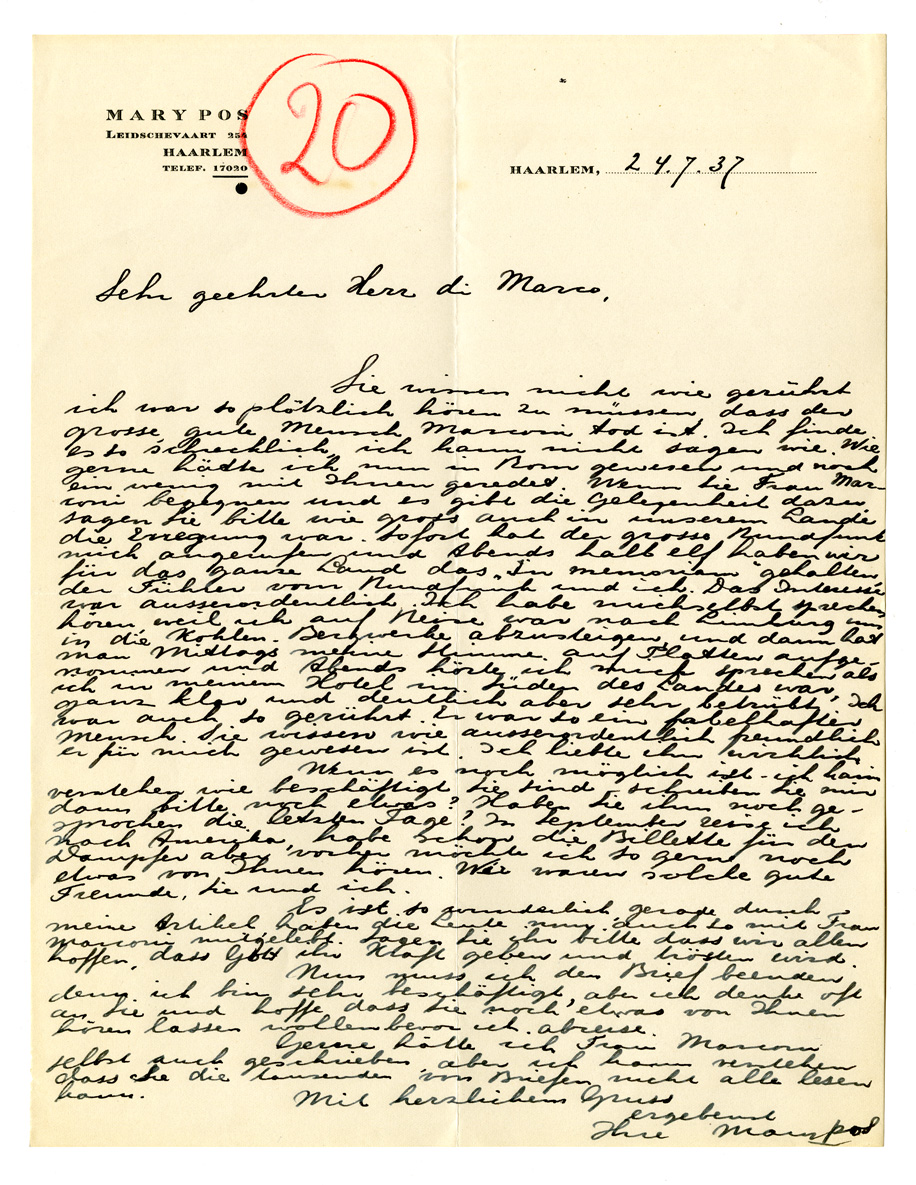 MARY POS
LEIDSCHEVAART 254
HAARLEM
TELEF. 17020
20
HAARLEM, 24.7.37
Sehr geehrter Herr di Marco,
Sie wissen nicht wie gerührt
ich war so plötzlich hören zu müssen dass der
grosse, gute Mensch Marconi tod ist. Ich finde
es so schrecklich, ich kann nicht sagen wie. Wie
gerne hätte ich nun in Rom gewesen und noch
ein wenig mit Ihnen geredet. Wenn Sie Frau Mar-
coni begegnen und es gibt die Gelegenheit dazu
sagen Sie bitte wie gross auch in unserem Lande
die Erregung war. Sofort hat der grosse Rundfunk
mich angerufen und Abends halb elf haben wir
für das ganze Land das "In memoriam" gehalten,
der Führer vom Rundfunk und ich. Das Interesse
war ausserordentlich. Ich habe michselbst sprechen
hören weil ich auf Reise war nach Limburg um
in die Kohlen-Bergwerke abzusteigen, und dann hat
man Mittags meine Stimme auf Platten aufge-
nommen und Abends hörte ich mich sprechen als
ich in meinem Hotel im Süden des Landes war,
ganz klar und deutlich aber sehr betrübt. Ich
war auch so gerührt. Er war so ein fabelhafter
Mensch. Sie wissen wie ausserordentlich freundlich
er für mich gewesen ist. Ich liebte ihn wirklich.
Wenn es noch möglich ist - ich kann
verstehen wie beschäftigt Sie sind - schreiben Sie mir
dann bitte noch etwas? Haben Sie ihm noch ge-
sprochen die letzten Tage? In September reise ich
nach Amerika, habe schon die Billette für den
Dampfer aber vorher möchte ich so gern noch
etwas von Ihnen hören. Wir waren solche gute
Freunde, Sie und ich.
Es ist so wunderlich gerade durch
meine Artikel haben die Leute nun auch so mit Frau
Marconi mitgelebt. Sagen Sie ihr bitte dass wir allen
hoffen, dass Gott ihr Kraft geben und trösten wird.
Nun muss ich den Brief beenden,
denn ich bin sehr beschäftigt, aber ich denke oft
an Sie und hoffe dass Sie noch etwas von Ihnen
hören lassen wollen bevor ich abreise.
Gerne hätte ich Frau Marconi
selbst auch geschrieben aber ich kann verstehen
dass Sie die tausenden von Briefen nicht alle lesen
kann.
Mit herzlichem Gruss
ergebenst
Ihre Mary Pos